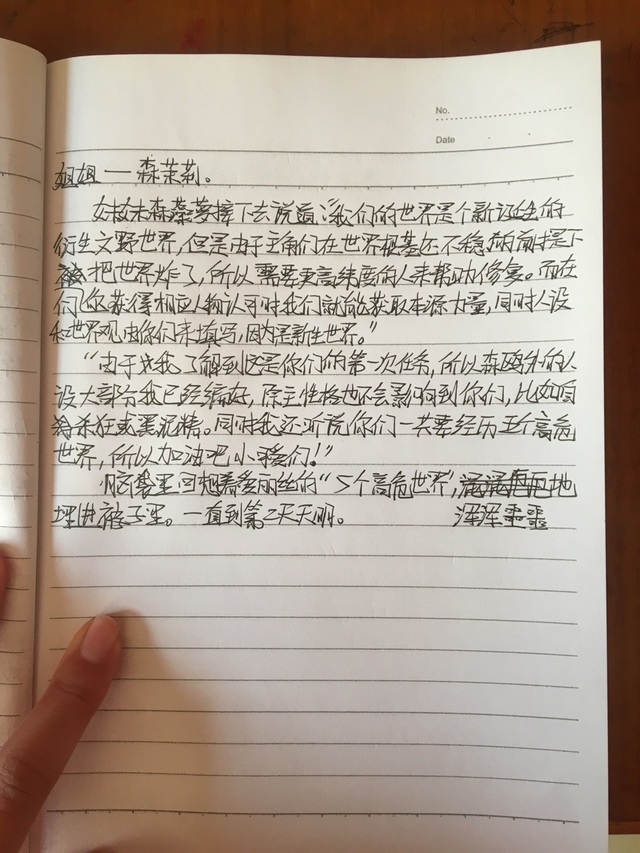 No.
Date
姐姐——森茉莉。
妹妹森蔡萝接下去说道:“我们的世界是个新诞生的
衍生文野世界,但是由于主角们在世界根基还不稳的前提下
把世界炸了,所以需要更高纬度的人来帮助修复。而在
们你获得相应人物认可时我们就能获取本源力量,同时人设
和世界观由你们来填写,因为是新生世界。”
“由于我了解到这是你们的第一次任务,所以森鸥外的人
设大部分我已经编好,除主性格也不会影响到你们,比如因
为杀狂或黑泥精。同时我还听说你们一共要经历五个高危
世界,所以加油吧小豬们!”
脑袋里回想着爱丽丝的“5个高危世界”,地
埋进被子里。一直到第2天天明。 浑浑噩噩